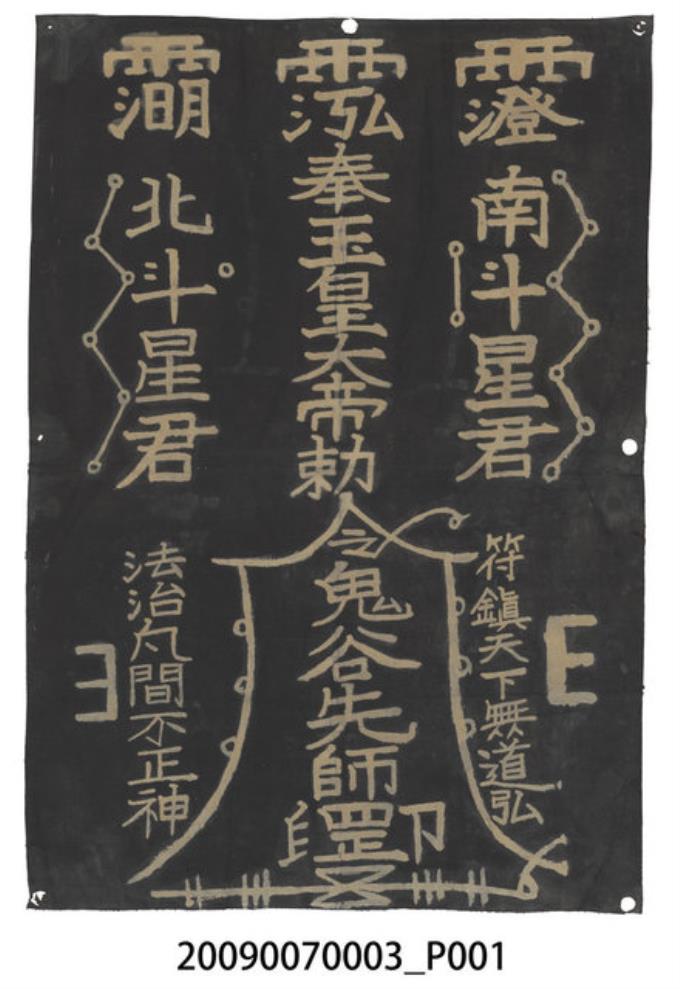 南斗星君
奉玉皇大帝勅令鬼谷先師罡印
北斗星君
符鎮天下無道弘
法治凡間不正神
20090070003_P001